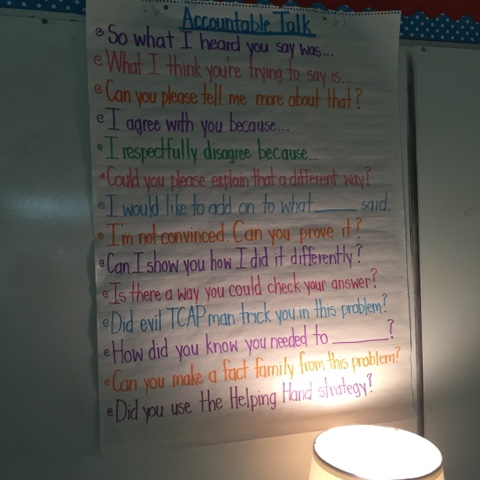 Accountable Talk
So what I heard you say was...
What I think you're trying to say is...
Can you please tell me more about that?
I agree with you because...
I respectfully disagree because...
Could you please explain that a different way?
I would like to add on to what ______ said.
I'm not convinced. Can you prove it?
Can I show you how I did it differently?
Is there a way you could check your answer?
Did evil TCAP man trick you in this problem?
How did you know you needed to ______?
Can you make a fact family from this problem?
Did you use the Helping Hand strategy?